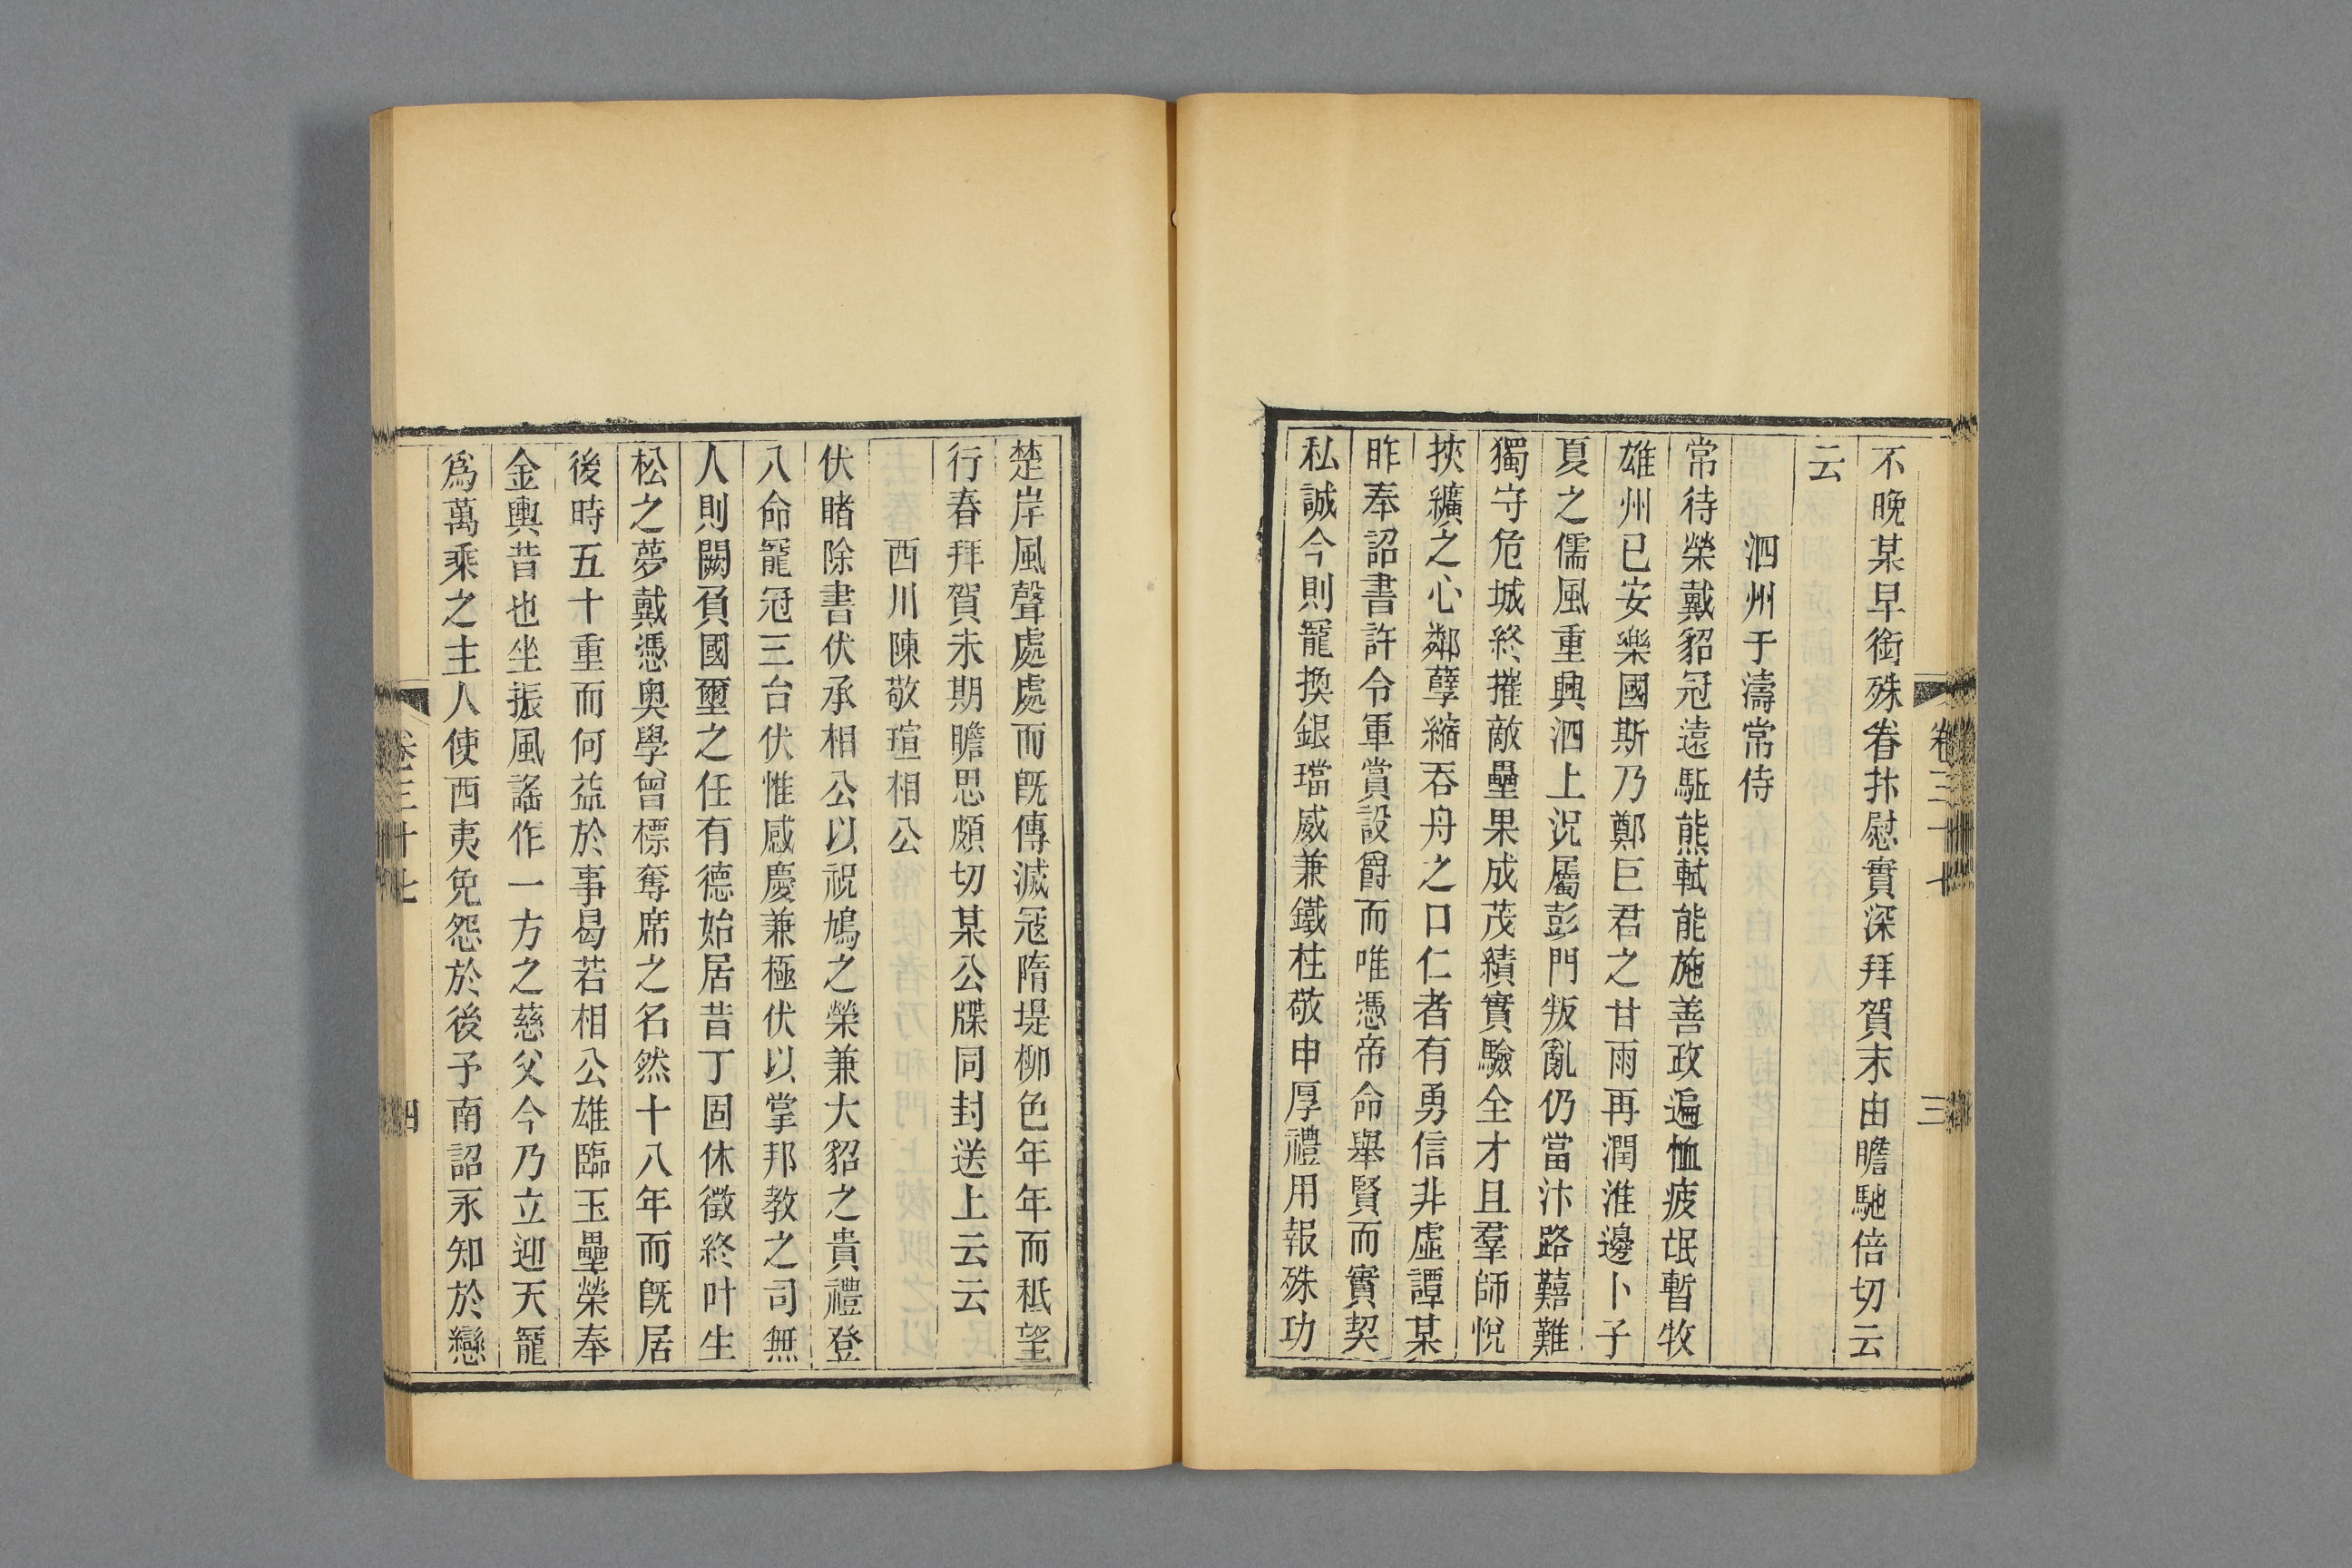 不晚某早銜殊眷抃慰實深拜賀末由瞻馳倍切云
云
泗州于濤常侍
常待榮戴貂冠遠駈熊軾能施善政遍恤疲氓暫牧
雄州已安樂國斯乃鄭巨君之甘雨再潤淮邊卜子
夏之儒風重興泗上況屬彭門叛亂仍當汴路囏難
獨守危城終摧敵壘果成茂績實驗全才且羣師悅
挾纊之心鄰孽縮吞舟之口仁者有勇信非虛譚某
昨奉詔書許令軍賞設爵而唯憑帝命舉賢而實契
私誠今則寵換銀璫威兼鐵柱敬申厚禮用報殊功
卷三十七
三
楚岸風聲處處而旣傳滅寇隋堤柳色年年而秪望
行春拜賀未期瞻思頗切某公牒同封送上云云
西川陳敬瑄相公
伏睹除書伏承相公以祝鳩之榮兼大貂之貴禮登
八命寵冠三台伏惟感慶兼極伏以掌邦教之司無
人則闕負國璽之任有德始居昔丁固休徵終叶生
松之夢戴憑奥學曾標奪席之名然十八年而旣居
後時五十重而何益於事曷若相公雄臨玉壘榮奉
金輿昔也坐振風謠作一方之慈父今乃立迎天寵
爲萬乘之主人使西夷免怨於後予南詔永知於戀
卷三十七
四